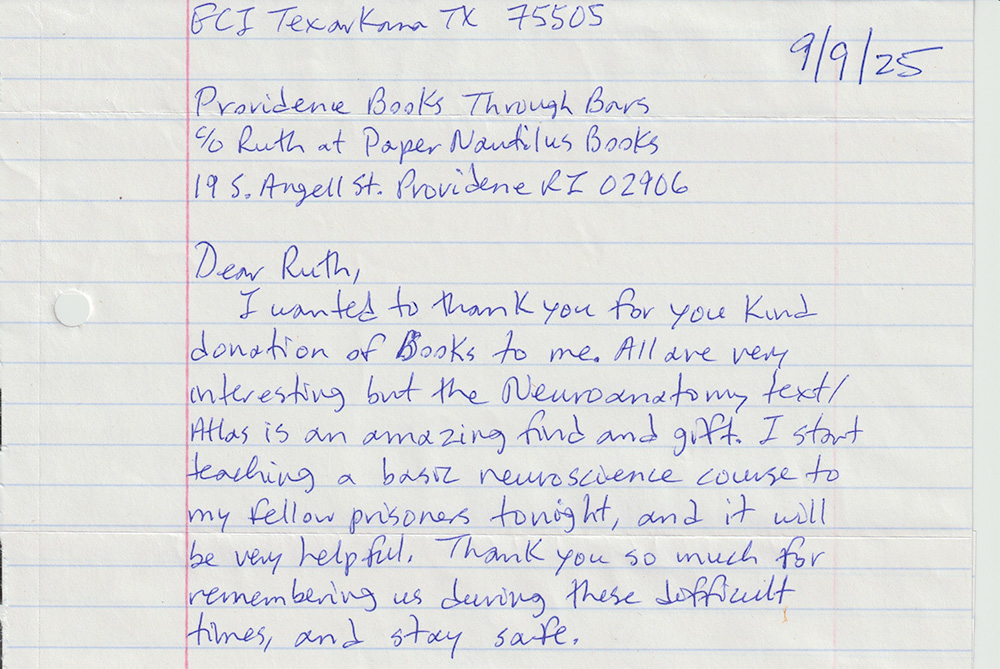 FCI Texarkana TX 75505
9/9/25
Providence Books Through Bars
c/o Ruth at Paper Nautilus Books
19 S. Angell St. Providence RI 02906
Dear Ruth,
I wanted to thank you for you kind
donation of Books to me. All are very
interesting but the Neuroanatomy text/
Atlas is an amazing find and gift. I start
teaching a basic neuroscience course to
my fellow prisoners tonight, and it will
be very helpful. Thank you so much for
remembering us during these difficult
times, and stay safe.